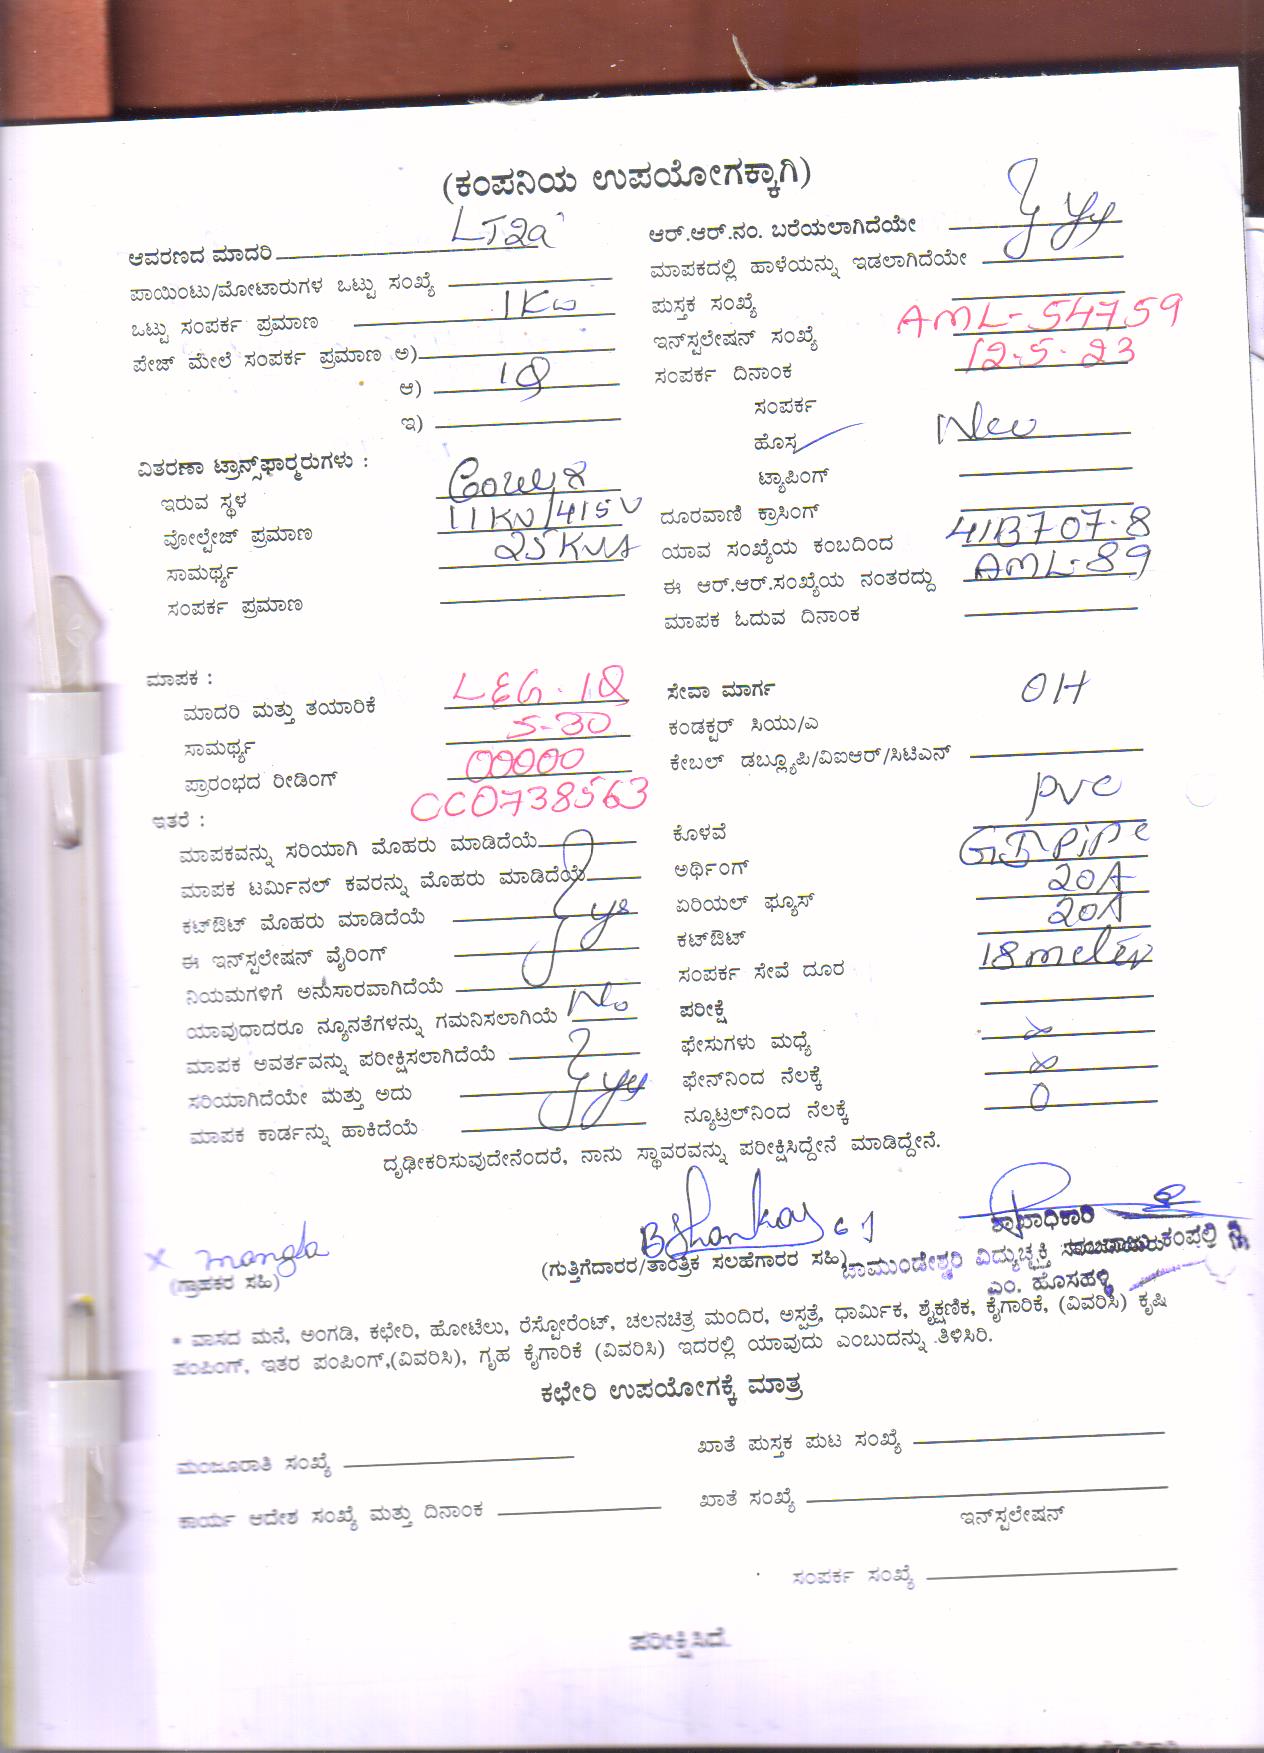 (ಕಂಪನಿಯ ಉಪಯೋಗಕ್ಕಾಗಿ)
ಆವರಣದ ಮಾದರಿ LT2a
ಪಾಯಿಂಟು/ಮೋಟಾರುಗಳ ಒಟ್ಟು ಸಂಖ್ಯೆ
ಒಟ್ಟು ಸಂಪರ್ಕ ಪ್ರಮಾಣ 1Kw
ಪೇಜ್ ಮೇಲೆ ಸಂಪರ್ಕ ಪ್ರಮಾಣ ಅ)
ಆ) 1Ø
ಇ)
ವಿತರಣಾ ಟ್ರಾನ್ಸ್‌ಫಾರ್‍ಮರುಗಳು :
ಇರುವ ಸ್ಥಳ
ವೋಲ್ಟೇಜ್ ಪ್ರಮಾಣ 11KV/415V
ಸಾಮರ್ಥ್ಯ 25KVA
ಸಂಪರ್ಕ ಪ್ರಮಾಣ
ಆರ್.ಆರ್.ನಂ. ಬರೆಯಲಾಗಿದೆಯೇ
ಮಾಪಕದಲ್ಲಿ ಹಾಳೆಯನ್ನು ಇಡಲಾಗಿದೆಯೇ
ಪುಸ್ತಕ ಸಂಖ್ಯೆ
ಇನ್‌ಸ್ಟಲೇಷನ್ ಸಂಖ್ಯೆ AML-54759
ಸಂಪರ್ಕ ದಿನಾಂಕ 12-5-23
ಸಂಪರ್ಕ
ಹೊಸ New
ಟ್ಯಾಪಿಂಗ್
ದೂರವಾಣಿ ಕ್ರಾಸಿಂಗ್
ಯಾವ ಸಂಖ್ಯೆಯ ಕಂಬದಿಂದ 41B707-8
ಈ ಆರ್.ಆರ್.ಸಂಖ್ಯೆಯ ನಂತರದ್ದು AML-89
ಮಾಪಕ ಓದುವ ದಿನಾಂಕ
ಮಾಪಕ :
ಮಾದರಿ ಮತ್ತು ತಯಾರಿಕೆ L&G-1Ø
ಸಾಮರ್ಥ್ಯ 5-30
ಪ್ರಾರಂಭದ ರೀಡಿಂಗ್ 00000
CC0738563
ಇತರೆ :
ಮಾಪಕವನ್ನು ಸರಿಯಾಗಿ ಮೊಹರು ಮಾಡಿದೆಯೆ
ಮಾಪಕ ಟರ್ಮಿನಲ್ ಕವರನ್ನು ಮೊಹರು ಮಾಡಿದೆಯೆ
ಕಟ್‌ಔಟ್ ಮೊಹರು ಮಾಡಿದೆಯೆ
ಈ ಇನ್‌ಸ್ಟಲೇಷನ್ ವೈರಿಂಗ್
ನಿಯಮಗಳಿಗೆ ಅನುಸಾರವಾಗಿದೆಯೆ
ಯಾವುದಾದರೂ ನ್ಯೂನತೆಗಳನ್ನು ಗಮನಿಸಲಾಗಿಯೆ No
ಮಾಪಕ ಅವರ್ತವನ್ನು ಪರೀಕ್ಷಿಸಲಾಗಿದೆಯೆ
ಸರಿಯಾಗಿದೆಯೇ ಮತ್ತು ಅದು
ಮಾಪಕ ಕಾರ್ಡನ್ನು ಹಾಕಿದೆಯೆ
ಸೇವಾ ಮಾರ್ಗ OH
ಕಂಡಕ್ಟರ್ ಸಿಯು/ಎ
ಕೇಬಲ್ ಡಬ್ಲ್ಯೂಪಿ/ವಿಐಆರ್/ಸಿಟಿಎನ್
ಕೊಳವೆ PVC
ಅರ್ಥಿಂಗ್ GI-Pipe
ಏರಿಯಲ್ ಫ್ಯೂಸ್ 20A
ಕಟ್‌ಔಟ್ 20A
ಸಂಪರ್ಕ ಸೇವೆ ದೂರ 18 meter
ಪರೀಕ್ಷೆ
ಫೇಸುಗಳು ಮಧ್ಯೆ ∞
ಫೇಸ್‌ನಿಂದ ನೆಲಕ್ಕೆ ∞
ನ್ಯೂಟ್ರಲ್‌ನಿಂದ ನೆಲಕ್ಕೆ 0
ದೃಢೀಕರಿಸುವುದೇನೆಂದರೆ, ನಾನು ಸ್ಥಾವರವನ್ನು ಪರೀಕ್ಷಿಸಿದ್ದೇನೆ ಮಾಡಿದ್ದೇನೆ.
x mangla
B Shankar
(ಗ್ರಾಹಕರ ಸಹಿ)
(ಗುತ್ತಿಗೆದಾರರ/ತಾಂತ್ರಿಕ ಸಲಹೆಗಾರರ ಸಹಿ)
ಶಾಖಾಧಿಕಾರಿ
ಚಾಮುಂಡೇಶ್ವರಿ ವಿದ್ಯುಚ್ಛಕ್ತಿ ಕಂಪನಿ ನಿ
ಎಂ. ಹೊಸಹಳ್ಳಿ
* ವಾಸದ ಮನೆ, ಅಂಗಡಿ, ಕಛೇರಿ, ಹೋಟೆಲು, ರೆಸ್ಟೋರೆಂಟ್, ಚಲನಚಿತ್ರ ಮಂದಿರ, ಅಸ್ಪತ್ರೆ, ಧಾರ್ಮಿಕ, ಶೈಕ್ಷಣಿಕ, ಕೈಗಾರಿಕೆ, (ವಿವರಿಸಿ) ಕೃಷಿ
ಪಂಪಿಂಗ್, ಇತರ ಪಂಪಿಂಗ್,(ವಿವರಿಸಿ), ಗೃಹ ಕೈಗಾರಿಕೆ (ವಿವರಿಸಿ) ಇದರಲ್ಲಿ ಯಾವುದು ಎಂಬುದನ್ನು ತಿಳಿಸಿರಿ.
ಕಛೇರಿ ಉಪಯೋಗಕ್ಕೆ ಮಾತ್ರ
ಮಂಜೂರಾತಿ ಸಂಖ್ಯೆ
ಖಾತೆ ಪುಸ್ತಕ ಪುಟ ಸಂಖ್ಯೆ
ಕಾರ್ಯ ಆದೇಶ ಸಂಖ್ಯೆ ಮತ್ತು ದಿನಾಂಕ
ಖಾತೆ ಸಂಖ್ಯೆ
ಇನ್‌ಸ್ಟಲೇಷನ್
ಸಂಪರ್ಕ ಸಂಖ್ಯೆ
ಪರೀಕ್ಷಿಸಿದೆ.